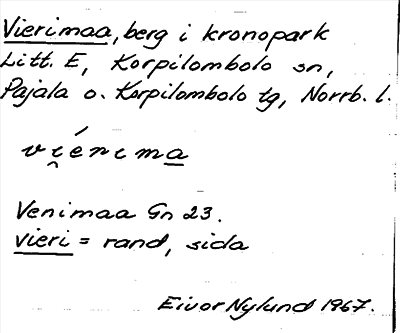 Vierimaa, berg i kronopark
Litt. E, Korpilombolo sn,
Pajala o. Korpilombolo tg, Norrb. l.
vi̯érıma
Venimaa Gn 23.
vieri = rand, sida
Eivor Nylund 1967.